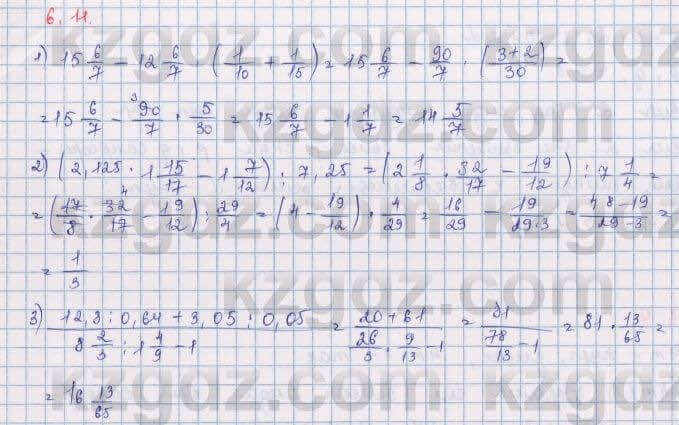 6.11.
1) 15 6/7 - 12 6/7 · (1/10 + 1/15) = 15 6/7 - 90/7 · (3+2/30) =
= 15 6/7 - 90/7 · 5/30 = 15 6/7 - 1 1/7 = 14 5/7
2) (2,125 · 1 15/17 - 1 7/12) : 7,25 = (2 1/8 · 32/17 - 19/12) : 7 1/4 =
= (17/8 · 32/17 - 19/12) : 29/4 = (4 - 19/12) · 4/29 = 16/29 - 19/29·3 = 48-19/29-3 =
= 1/3
3) 12,3 : 0,64 + 3,05 : 0,05 / 8 2/3 : 1 4/9 - 1 = 20+61 / 26/3 · 9/13 - 1 = 81 / 78/13 - 1 = 81 · 13/65 =
= 16 13/65
kzgoz.com